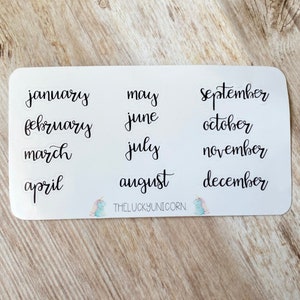 january
february
march
april
may
june
july
august
september
october
november
december
THELUCKYUNICORN.